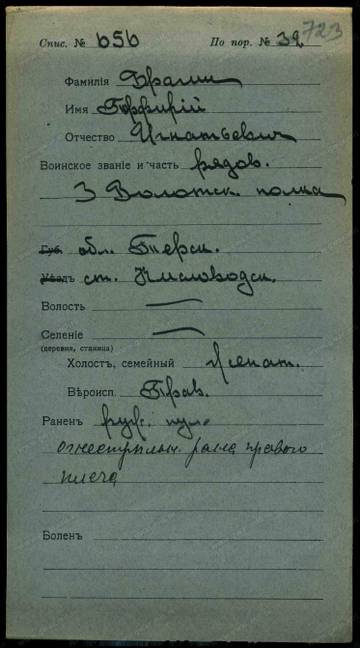 723
Спис. № 656 По пор. № 39
Фамилія
Имя Порфирій
Отчество Игнатьевич
Воинское званіе и часть рядов.
3 Волотск. полка
Губ. обл. Терск.
Уѣздъ ст. Кисловодск.
Волость —
Селеніе —
(деревня, станица)
Холост, семейный женат.
Вѣроисп. Прав.
Раненъ руж. пул.
огнестрѣльн. рана праваго
плеча
Боленъ